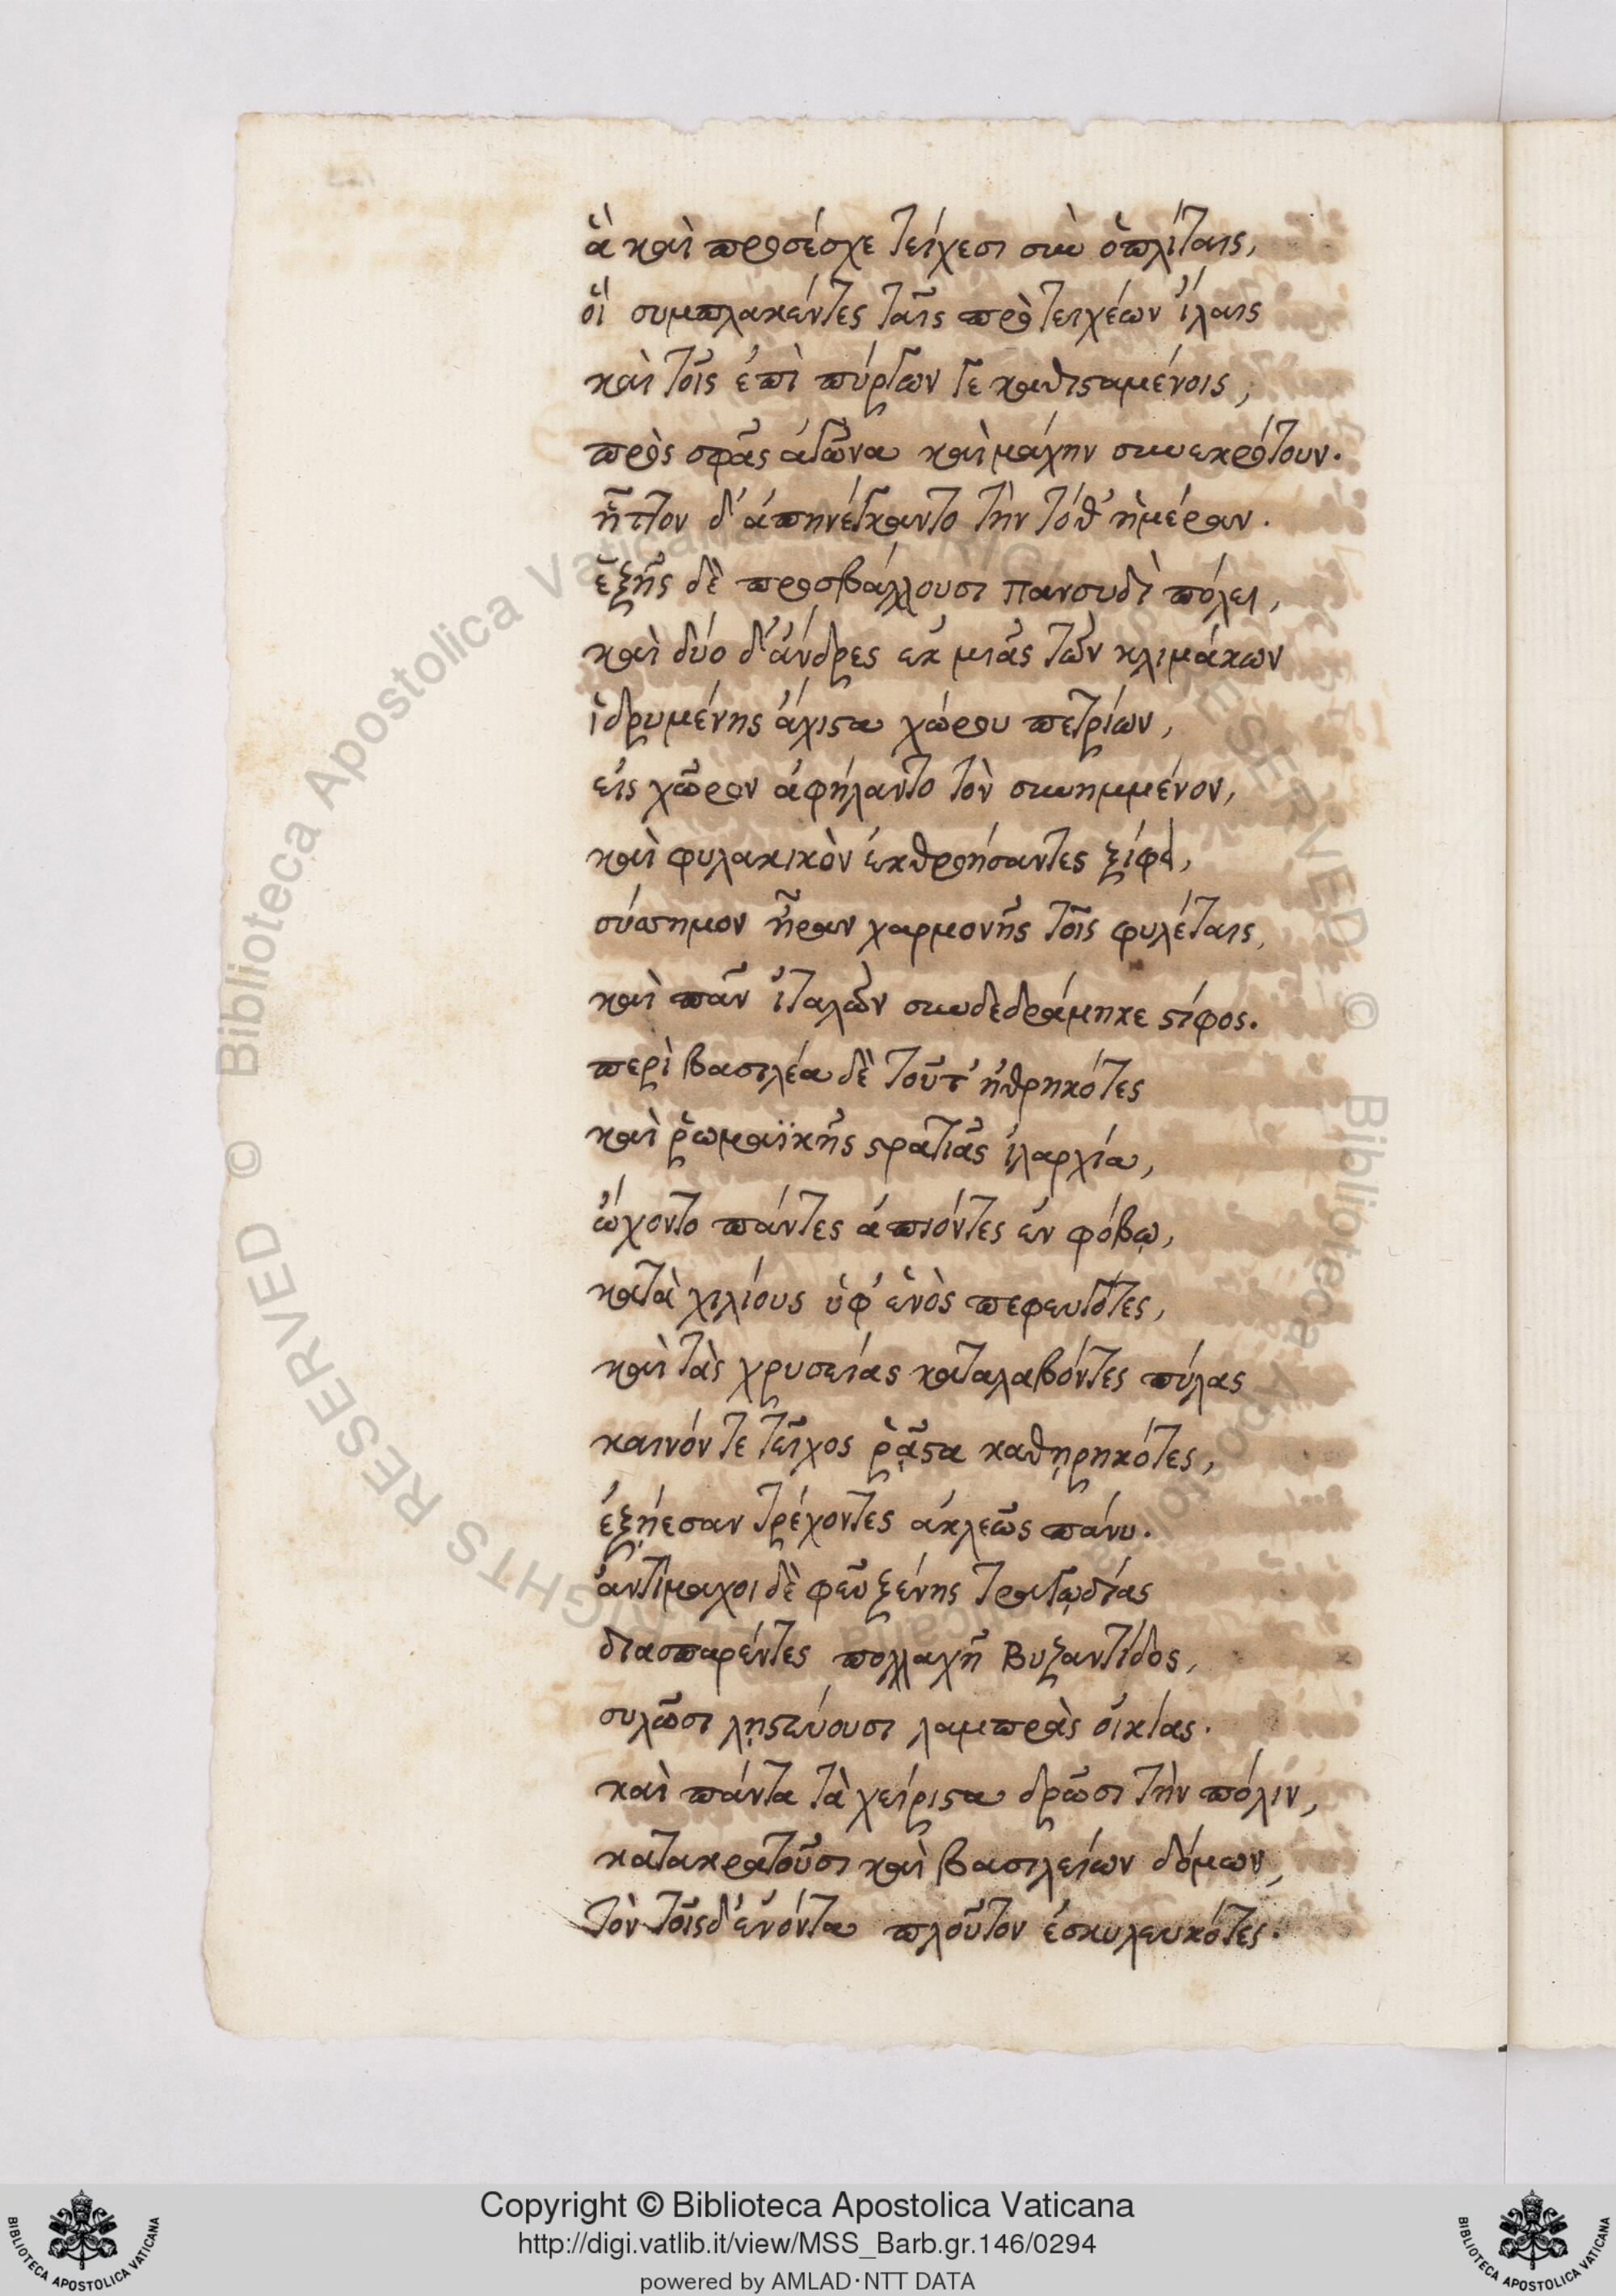 ἃ καὶ προσέσχε τείχεσι σὺν ὁπλίταις,
οἳ συμπλακέντες ταῖς πρὸ τειχέων ἴλαις
καὶ τοῖς ἐπὶ πύργων γε καθισαμένοις,
πρὸς σφᾶς ἀγῶνα καὶ μάχην συνεκρότουν.
ἧττον δ' ἀπηνέγκαντο τὴν τόθ' ἡμέραν.
ἑξῆς δὲ προσβάλλουσι πανσυδὶ πόλει,
καὶ δύο δ' ἄνδρες ἐκ μιᾶς τῶν κλιμάκων
ἱδρυμένης ἄγχιστα χώρου πετρίων,
εἰς χῶρον ἀφήλαντο τὸν συνημμένον,
καὶ φυλακικὸν ἐκθροήσαντες ξίφει,
σύσσημον ἦραν χαρμονῆς τοῖς φυλέταις,
καὶ πᾶν ἰταλῶν συνδεδράμηκε στίφος.
περὶ βασιλέα δὲ τοῦτ' ἠθρηκότες
καὶ ῥωμαϊκῆς στρατιᾶς ἰλαρχία,
ᾤχοντο πάντες ἀπιόντες ἐν φόβῳ,
κατὰ χιλίους ὑφ' ἑνὸς πεφευγότες,
καὶ τὰς χρυσείας καταλαβόντες πύλας
καινόν τε τεῖχος ῥᾷστα καθῃρηκότες,
ἐξῄεσαν τρέχοντες ἀκλεῶς πάνυ.
ἀντίμαχοι δὲ φεῦ ξένης τραγῳδίας
διασπαρέντες πολλαχῆ Βυζαντίδος,
συλῶσι λῃστεύουσι λαμπρὰς οἰκίας.
καὶ πάντα τὰ χείριστα δρῶσι τὴν πόλιν,
κατακρατοῦσι καὶ βασιλείων δόμων,
τὸν τοῖσδ' ἐνόντα πλοῦτον ἐσκυλευκότες.
Copyright © Biblioteca Apostolica Vaticana
http://digi.vatlib.it/view/MSS_Barb.gr.146/0294
powered by AMLAD·NTT DATA
BIBLIOTECA APOSTOLICA VATICANA
BIBLIOTECA APOSTOLICA VATICANA